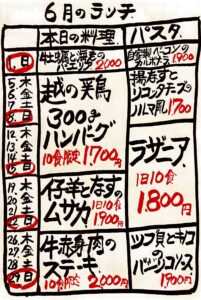 6月のランチ
本日の料理
パスタ
1.日
牡蠣と海老の
2000
自家製ベーコンの
カルボナーラ
1900
5 木
6 金
7 土
8.日
越の鶏
300g
ハンバーグ
10食限定 1,700円
揚げなすと
リコッタチーズの
ノルマ風 1700
12 木
13 金
14 土
15 日
ラザニア
1日10食
1,800円
19 木
20. 金
21 土
22 日
仔羊となすの
ムサカ 1日10食
1900円
26. 木
27. 金
28. 土
29 日
牛赤身肉の
ステーキ
10食限定 2,000円
ツブ貝とキノコ
の
1900